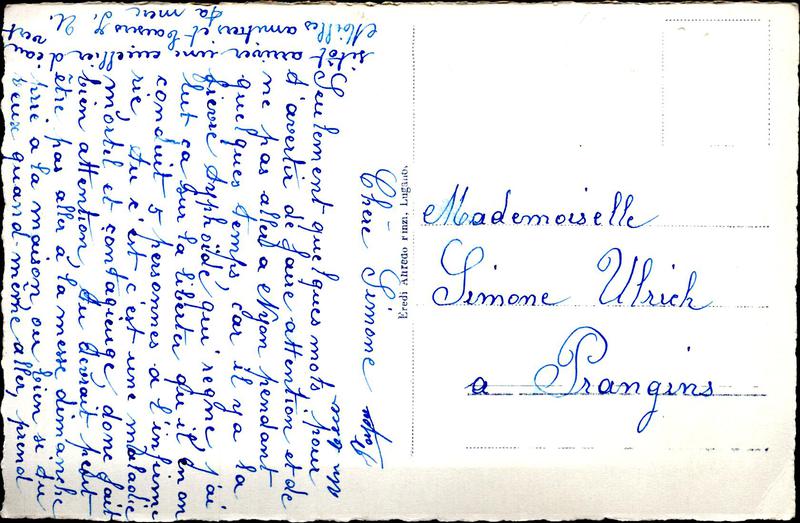 Chère Simone
Seulement quelques mots, pour
t'avertir de faire attention et de
ne pas aller a Nyon pendant
quelques temps, car il y a la
fièvre typhoïde qui règne, j'ai
lut ça sur la liberter qu'il en on
conduit 5 personnes a l'infirme
rie, tu c'est c'est une maladie
mortel et contagieuse, donc fait
bien attention, tu devrait peut
être pas aller à la messe dimanche
prié a la maison, ou bien si tu
veux quand même aller, prend
sitôt arriver une cuillier d'eau
amitiés et baisers
Lugano.
Mademoiselle
Simone Ulrich
a Prangins